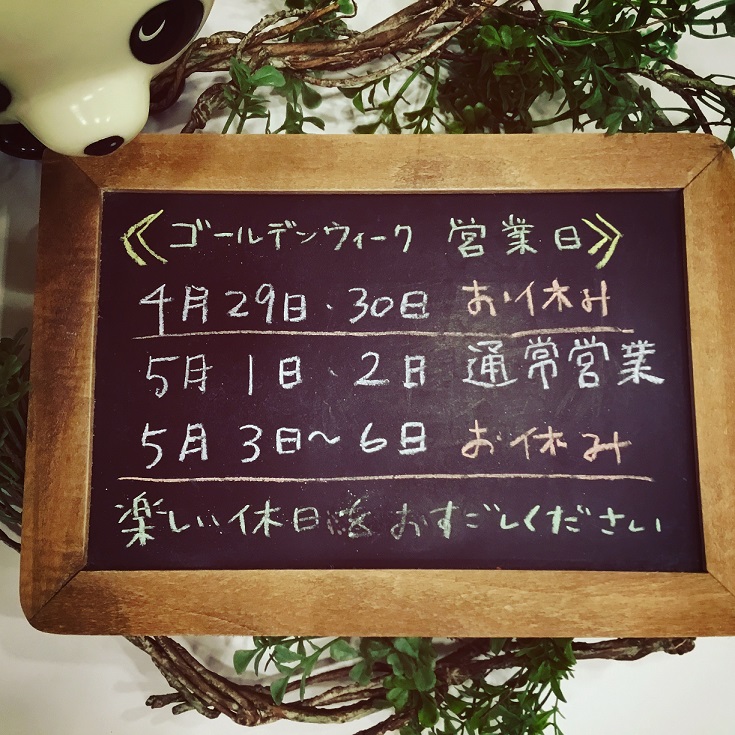 《ゴールデンウィーク 営業日》
4月29日・30日 お休み
5月1日・2日 通常営業
5月3日〜6日 お休み
楽しい休日をおすごしください